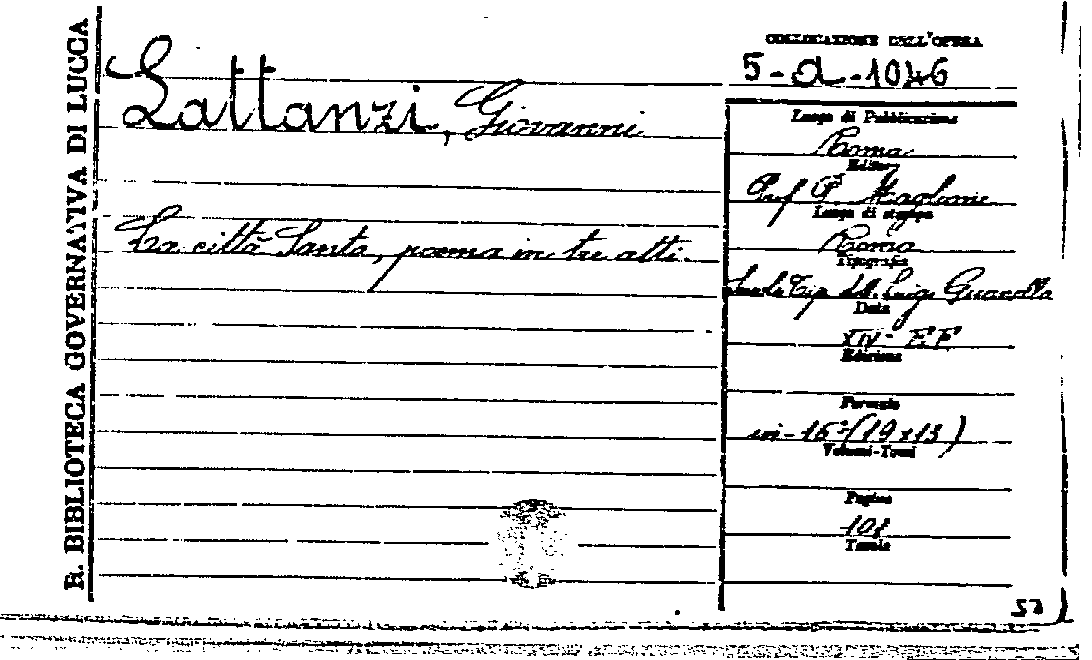 R. BIBLIOTECA GOVERNATIVA DI LUCCA
Lattanzi, Giovanni
La città Santa, poema in tre atti.
COLLOCAZIONE DELL'OPERA
5-a-1046
Luogo di Pubblicazione
Roma
Editore
Prof. P. Maglione
Luogo di stampa
Roma
Tipografia
Scuola Tip. del B. Luigi Guanella
Data
XIV- E.F.
Edizione
Formato
in-16º (19x13)
Volumi-Tomi
Pagine
Tavole